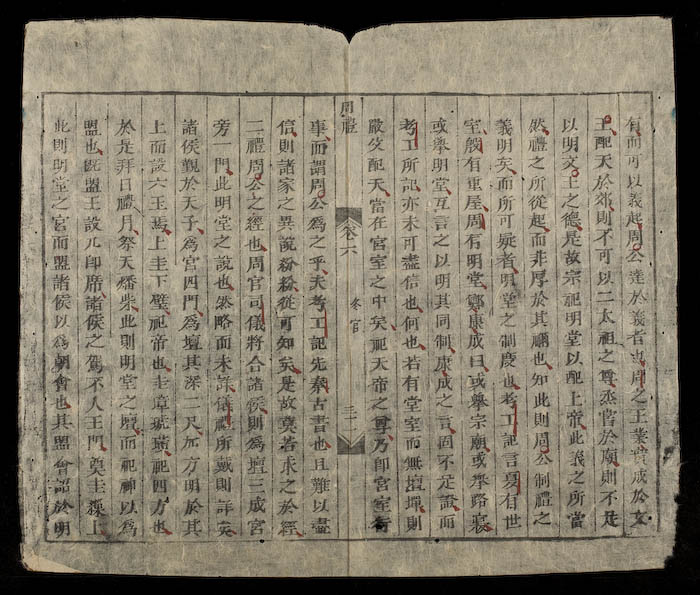 有而可以義起周公達於義者也周之王業實成於文
王配天於郊則不可以二太祖之尊烝嘗於廟則不足
以明文王之德是故宗祀明堂以配上帝此義之所當
然禮之所從起而非厚於其禰也知此則周公制禮之
義明矣而所可疑者明堂之制度也考工記言夏有世
室殷有重屋周有明堂鄭康成曰或舉宗廟或舉路寢
或舉明堂互言之以明其同制康成之言固不足證而
考工所記亦未可盡信也何也若有堂室而無壇墠則
嚴父配天當在宮室之中矣祀天帝之尊乃卽宮室行
周禮 卷六 冬官 三一
事而謂周公為之乎夫考工記先秦古書也且難以盡
信則諸家之異說紛紛從可知矣是故莫若求之於經
二禮周公之經也周官司儀將合諸侯則為壇三成宮
旁一門此明堂之說也然略而未詳儀禮所載則詳矣
諸侯覲於天子為宮四門為壇其深二尺加方明於其
上而設六玉焉上圭下璧祀帝也圭璋琥璜祀四方也
於是拜日禮月祭天燔柴此則明堂之壇而祀神以為
盟也旣盟王設几卽席諸侯之駕不入王門奠圭繅上
此則明堂之宮而盟諸侯以為朝會也其盟會詔於明